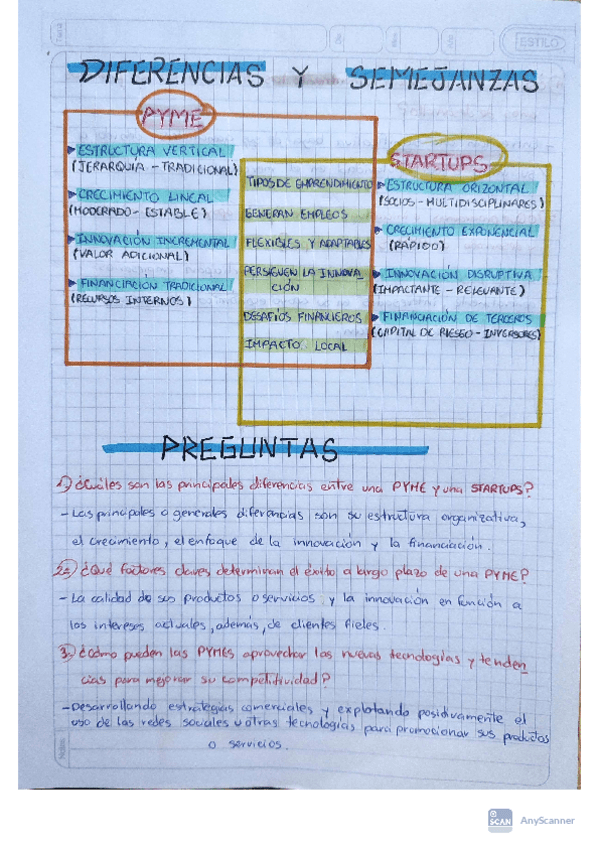 ESTILO
DIFERENCIAS Y SEMEJANZAS
PYME
▶ESTRUCTURA VERTICAL
(JERARQUÍA - TRADICIONAL)
▶CRECIMIENTO LINEAL
(MODERADO - ESTABLE)
▶INNOVACIÓN INCREMENTAL
(VALOR ADICIONAL)
▶FINANCIACIÓN TRADICIONAL
(RECURSOS INTERNOS)
TIPOS DE EMPRENDIMIENTO
GENERAN EMPLEOS
FLEXIBLES Y ADAPTABLES
PERSIGUEN LA INNOVA
CIÓN
DESAFÍOS FINANCIEROS
IMPACTO LOCAL
STARTUPS
▶ESTRUCTURA ORIZONTAL
(SOCIOS - MULTIDISCIPLINARES)
▶CRECIMIENTO EXPONENCIAL
(RÁPIDO)
▶INNOVACIÓN DISRUPTIVA
(IMPACTANTE - RELEVANTE)
▶FINANCIACIÓN DE TERCEROS
(CAPITAL DE RIESGO - INVERSORES)
PREGUNTAS
1) ¿Cuáles son las principales diferencias entre una PYME y una STARTUPS?
- Las principales o generales diferencias son su estructura organizativa,
el crecimiento, el enfoque de la innovación y la financiación.
2) ¿Qué factores claves determinan el éxito a largo plazo de una PYME?
- La calidad de sus productos o servicios y la innovación en función a
los intereses actuales, además, de clientes fieles.
3. ¿Cómo pueden las PYMES aprovechar las nuevas tecnologías y tenden
cias para mejorar su competitividad?
- Desarrollando estrategias comerciales y explotando positivamente el
uso de las redes sociales u otras tecnologías para promocionar sus productos
o servicios.
SCAN AnyScanner